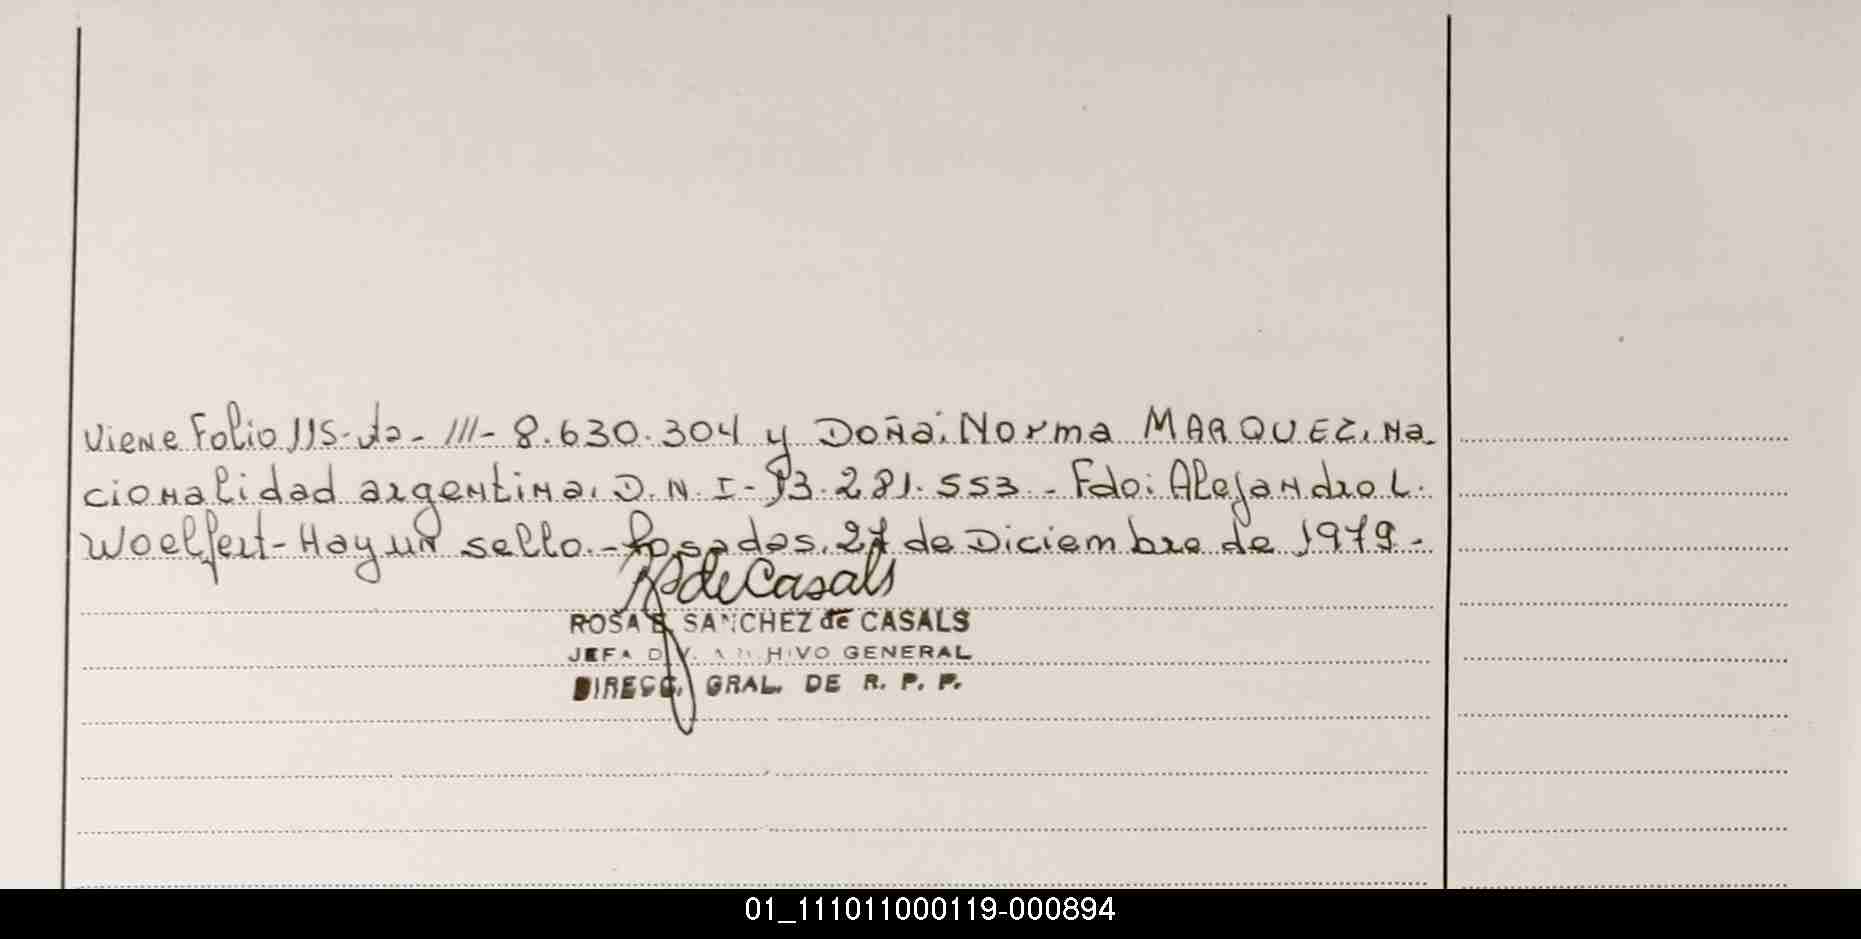 Viene Folio 115-vta- ///- 8.630.304 y Doña: Norma MARQUEZ, na-
cionalidad argentina, D.N.I- 13.281.553 - Fdo: Alejandro L.
Woelfert- Hay un sello.- Posadas, 27 de Diciembre de 1979.-
de Casals
ROSA E. SANCHEZ de CASALS
JEFA DIV. ARCHIVO GENERAL
DIRECC. GRAL. DE R. P. P.
01_111011000119-000894